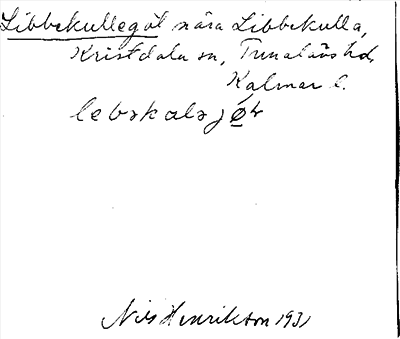 Libbekullegöl nära Libbekulla,
Kristdala sn, Tunaläns hd,
Kalmar l.
Nils Henrikson 1931